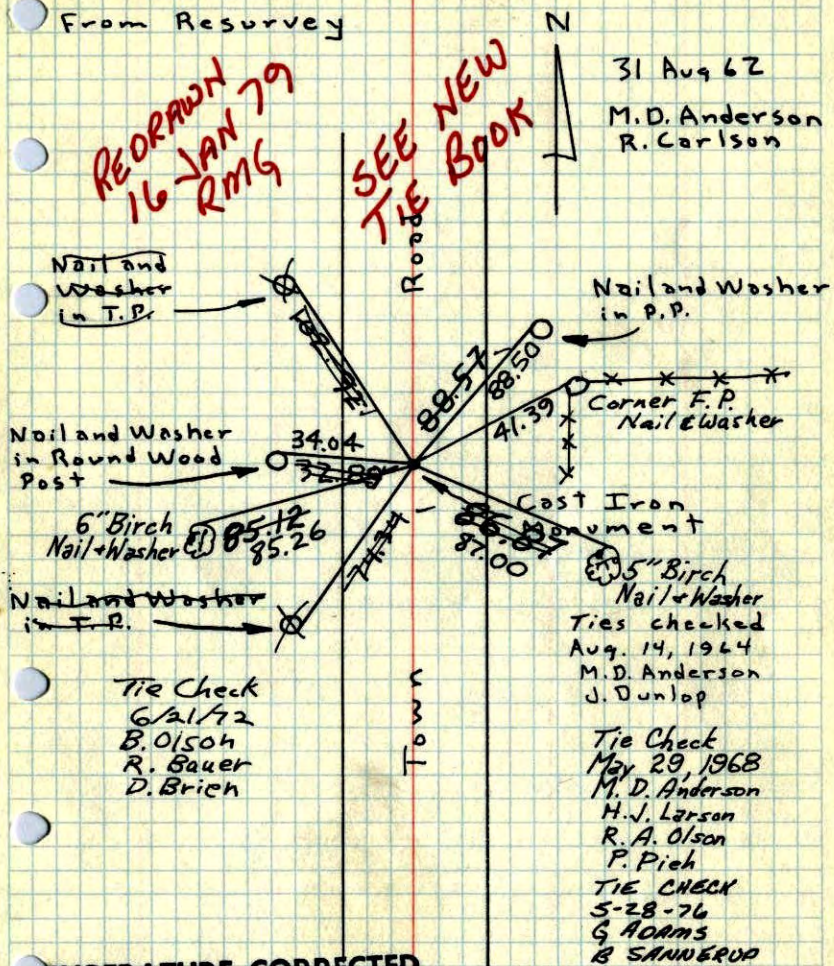 From Resurvey
N
31 Aug 62
M.D. Anderson
R. Carlson
REDRAWN
16 JAN 79
RMG
SEE NEW
TIE BOOK
Road
Nail and
Washer
in T.P.
Nail and Washer
in P.P.
88.57
88.50
41.39
Corner F.P.
Nail & Washer
Nail and Washer
in Round Wood
Post
34.04
32.89
6" Birch
Nail + Washer
85.12
85.26
Cast Iron
Monument
87.00
5" Birch
Nail + Washer
Nail and Washer
in T.P.
Ties checked
Aug. 14, 1964
M.D. Anderson
J. Dunlop
Town
Tie Check
6/21/72
B. Olson
R. Bauer
D. Brien
Tie Check
May 29, 1968
M.D. Anderson
H.J. Larson
R.A. Olson
P. Pieh
TIE CHECK
5-28-76
G ADAMS
B SANNERUD
CORRECTED